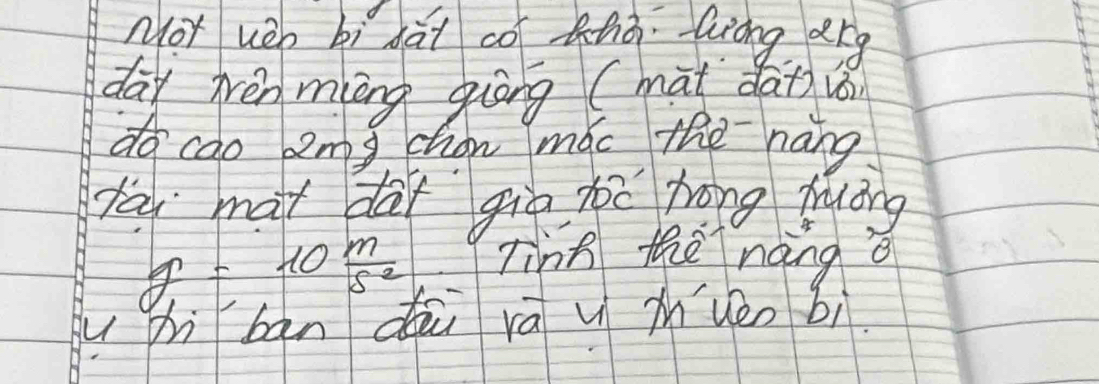 Một viên bi sắt có khối lượng 2kg
đặt trên miệng giếng (mặt đất) với
độ cao 2m chọn mốc thế năng
tại mặt đất gia tốc trọng trường
g = 10 m/s². Tính thế năng ở
vị trí ban đầu và vị trí viên bi.